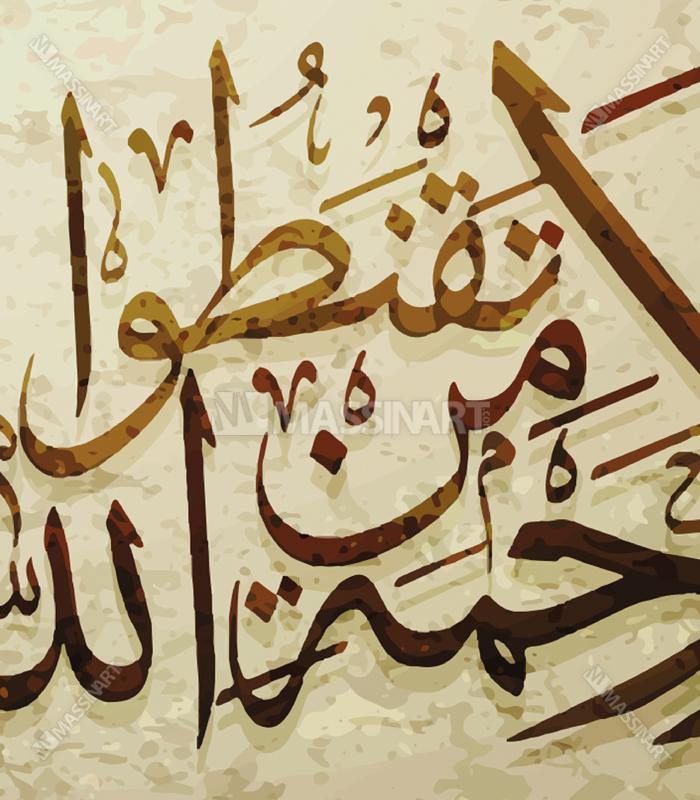 لا تقنطوا
من
رحمة الله
MASSINART
MASSINART
MASSINART
MASSINART
MASSINART